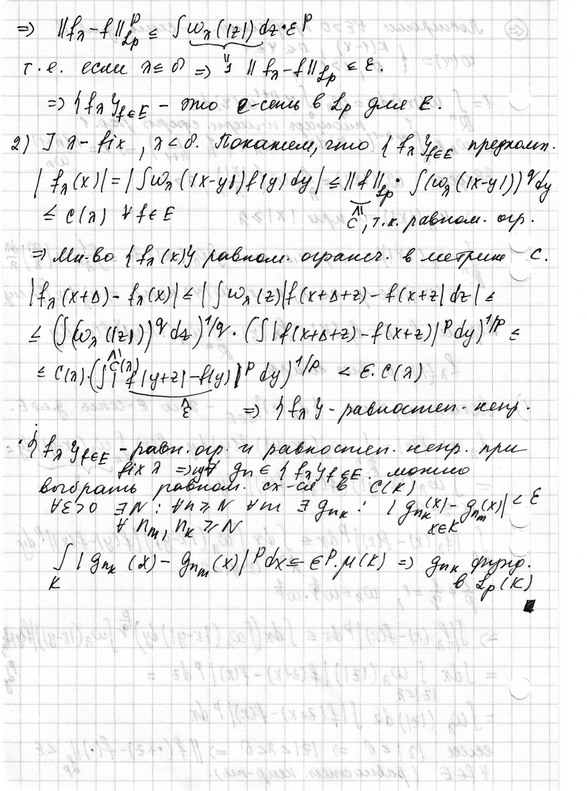 ⇒ ||f_λ-f||^p_{L_p} ≤ ∫ω_λ(|z|)dz·ε^p
т.е. если λ≤δ ⇒ 1 ||f_λ-f||_{L_p} ≤ ε.
⇒ {f_λ}_{f∈E} - это ε-сеть в L_p для E.
2) ] λ-fix, λ<δ. Покажем, что {f_λ}_{f∈E} предкомп.
|f_λ(x)|=|∫ω_λ(|x-y|)f(y)dy| ≤ ||f||_{L_p}·∫(ω_λ(|x-y|))^q dy
≤ C(λ) ∀f∈E C, т.к. равном. огр.
⇒ Мн-во {f_λ(x)} равном. огранич. в метрике C.
|f_λ(x+Δ)-f_λ(x)| ≤ |∫ω_λ(z)|f(x+Δ+z)-f(x+z|dz| ≤
≤ (∫(ω_λ(|z|))^q dz)^{1/q}·(∫|f(x+Δ+z)-f(x+z)|^p dy)^{1/p} ≤
C(λ)
≤ C(λ)·(∫|f(y+z)-f(y)|^p dy)^{1/p} < ε·C(λ)
ε ⇒ {f_λ} - равностеп. непр.
{f_λ}_{f∈E} - равн. огр. и равностеп. непр. при
fix λ ⇒ ∀ g_n ∈ {f_λ}_{f∈E} можно
выбрать равном. сх-ся в C(K)
∀ε>0 ∃N: ∀n≥N ∀m ∃ g_{n_k}: |g_{n_k}(x)-g_{n_m}(x)|<ε
∀ n_m, n_k ≥ N x∈K
∫_K |g_{n_k}(x)-g_{n_m}(x)|^p dx ≤ ε^p·μ(K) ⇒ g_{n_k} фунд.
в L_p(K)